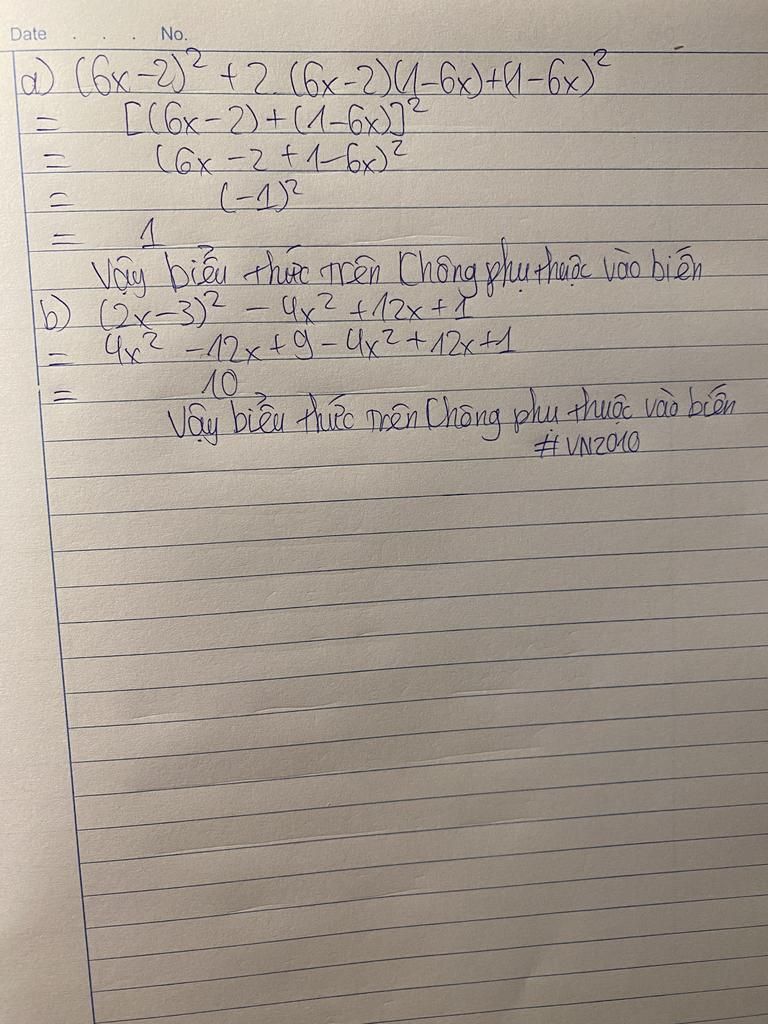 Date . . . No.
a) (6x-2)² + 2.(6x-2)(1-6x)+(1-6x)²
= [(6x-2)+(1-6x)]²
= (6x-2+1-6x)²
= (-1)²
= 1
Vậy biểu thức trên Chông phụ thuộc vào biến
b) (2x-3)² - 4x² +12x+1
= 4x² -12x+9-4x²+12x+1
= 10
Vậy biểu thức trên Chông phụ thuộc vào biến
#VN2010